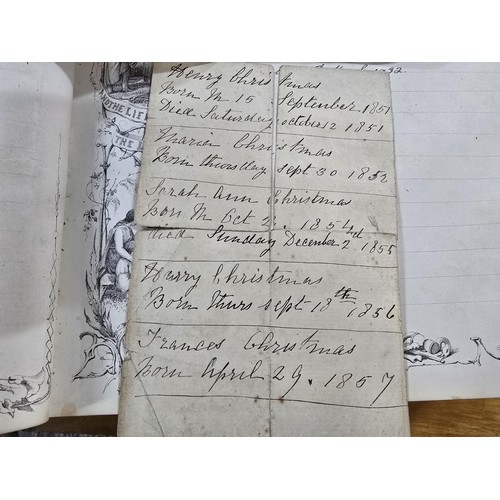 Henry Christmas
Born M 15 September 1851
Died Saturday october 12 1851
Maria Christmas
Born thursday sept 30 1852
Sarah Ann Christmas
born M Oct 2. 1854
died Sunday December 2nd 1855
Harry Christmas
Born thurs sept 18th 1856
Frances Christmas
Born April 29. 1857
THE